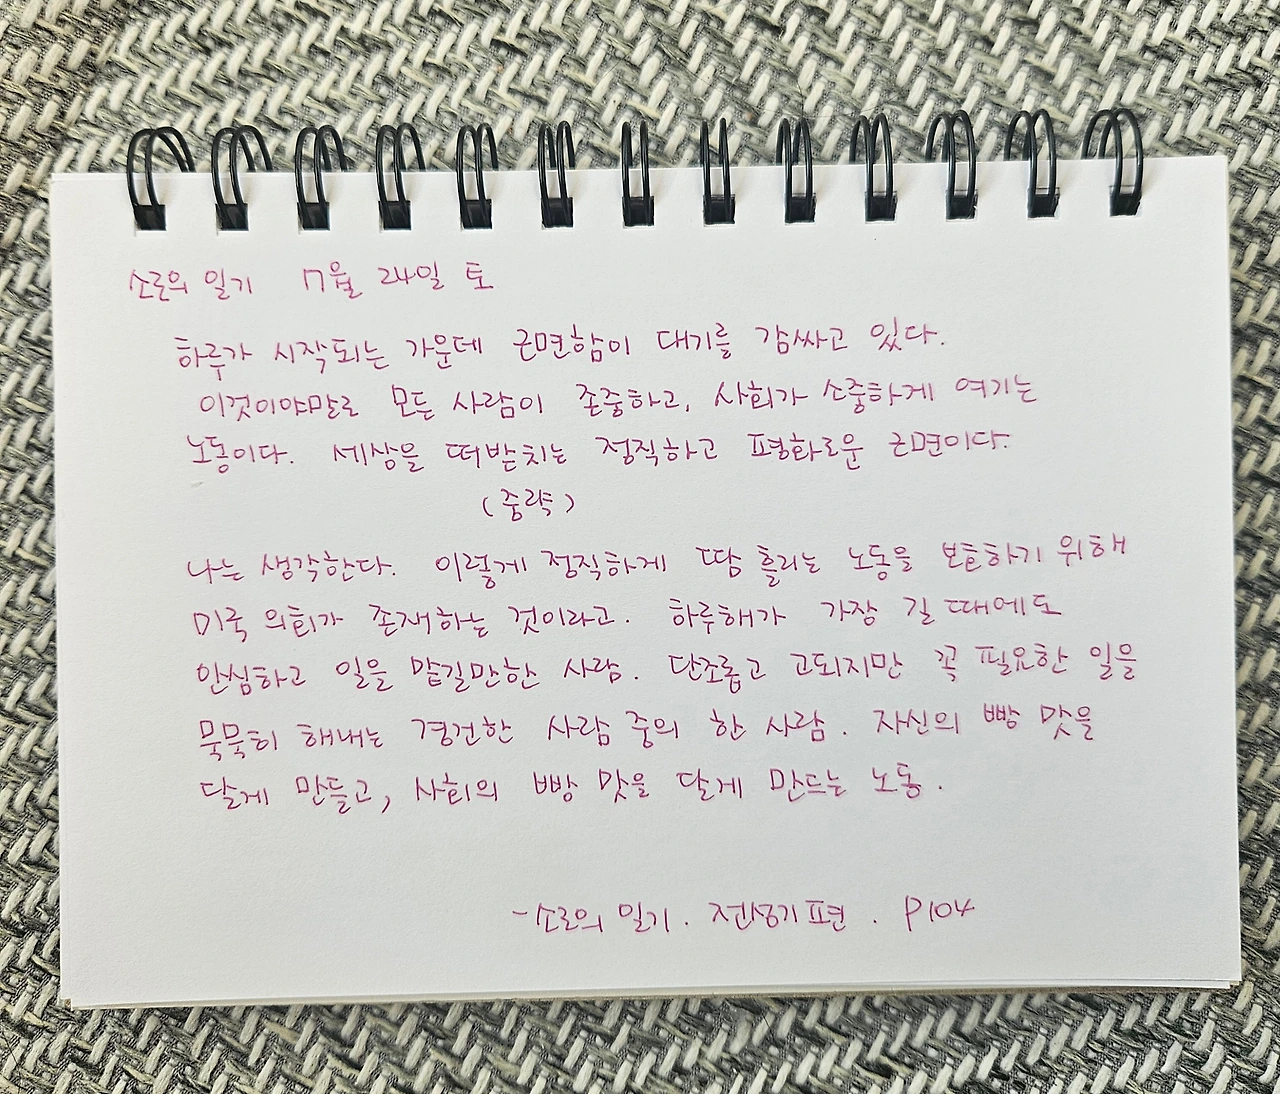 소로의 일기 7월 24일 토
하루가 시작되는 가운데 근면함이 대기를 감싸고 있다.
이것이야말로 모든 사람이 존중하고, 사회가 소중하게 여기는
노동이다. 세상을 떠받치는 정직하고 평화로운 근면이다.
(중략)
나는 생각한다. 이렇게 정직하게 땀 흘리는 노동을 보호하기 위해
미국 의회가 존재하는 것이라고. 하루해가 가장 길 때에도
안심하고 일을 맡길만한 사람. 단조롭고 고되지만 꼭 필요한 일을
묵묵히 해내는 경건한 사람 중의 한 사람. 자신의 빵 맛을
달게 만들고, 사회의 빵 맛을 달게 만드는 노동.
- 소로의 일기. 전성기편. P104